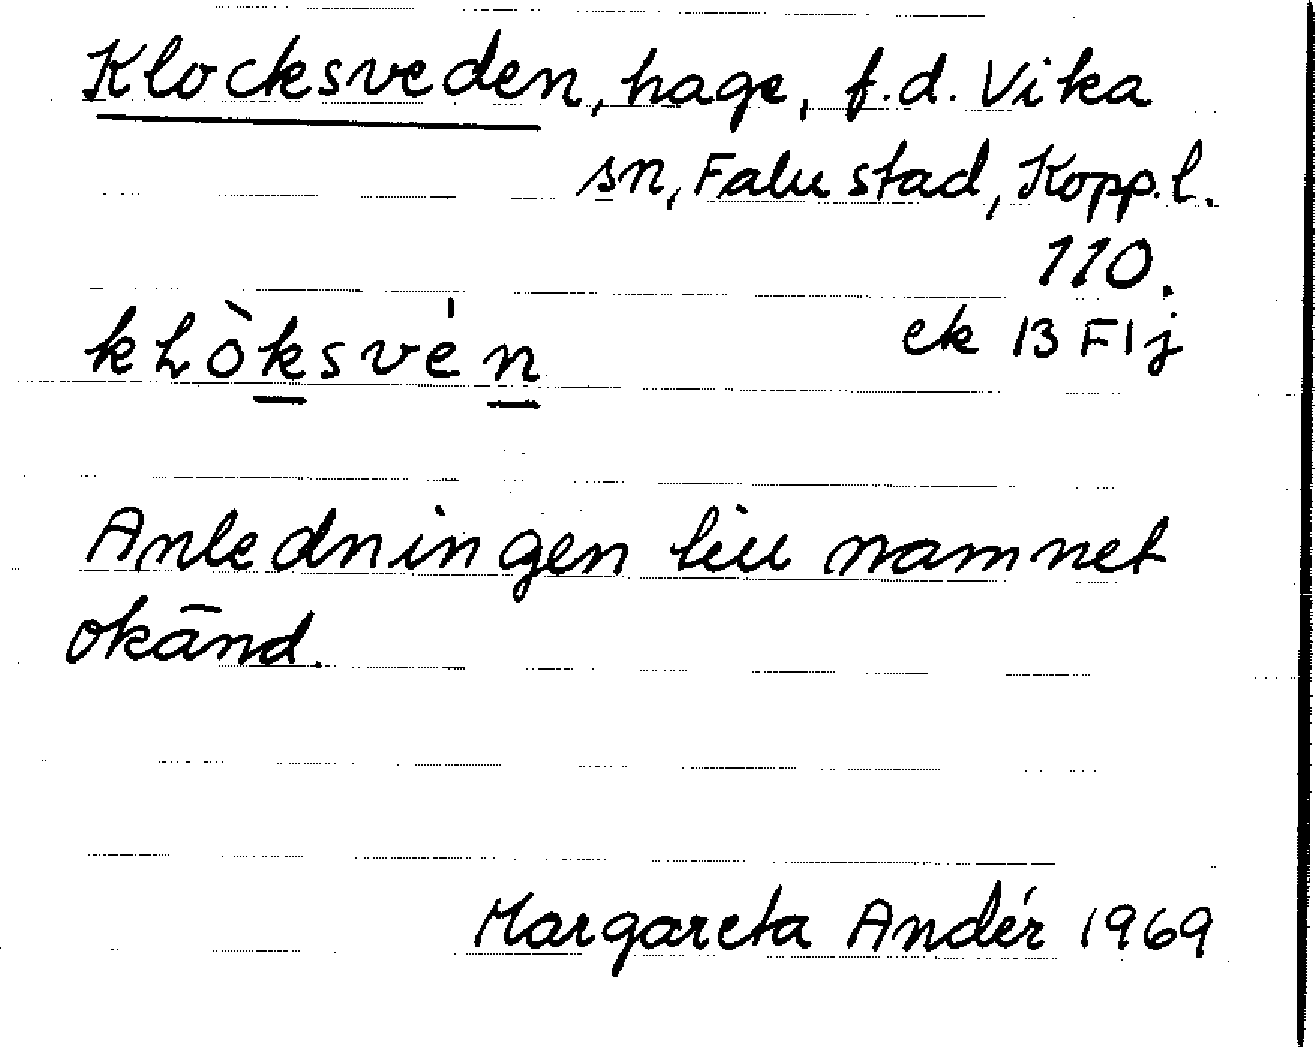 Klocksveden, hage, f.d. Vika
sn, Falu stad, Kopp.l.
110.
ek 13 F1j
kLòksvén
Anledningen till namnet
okänd.
Margareta Andér 1969